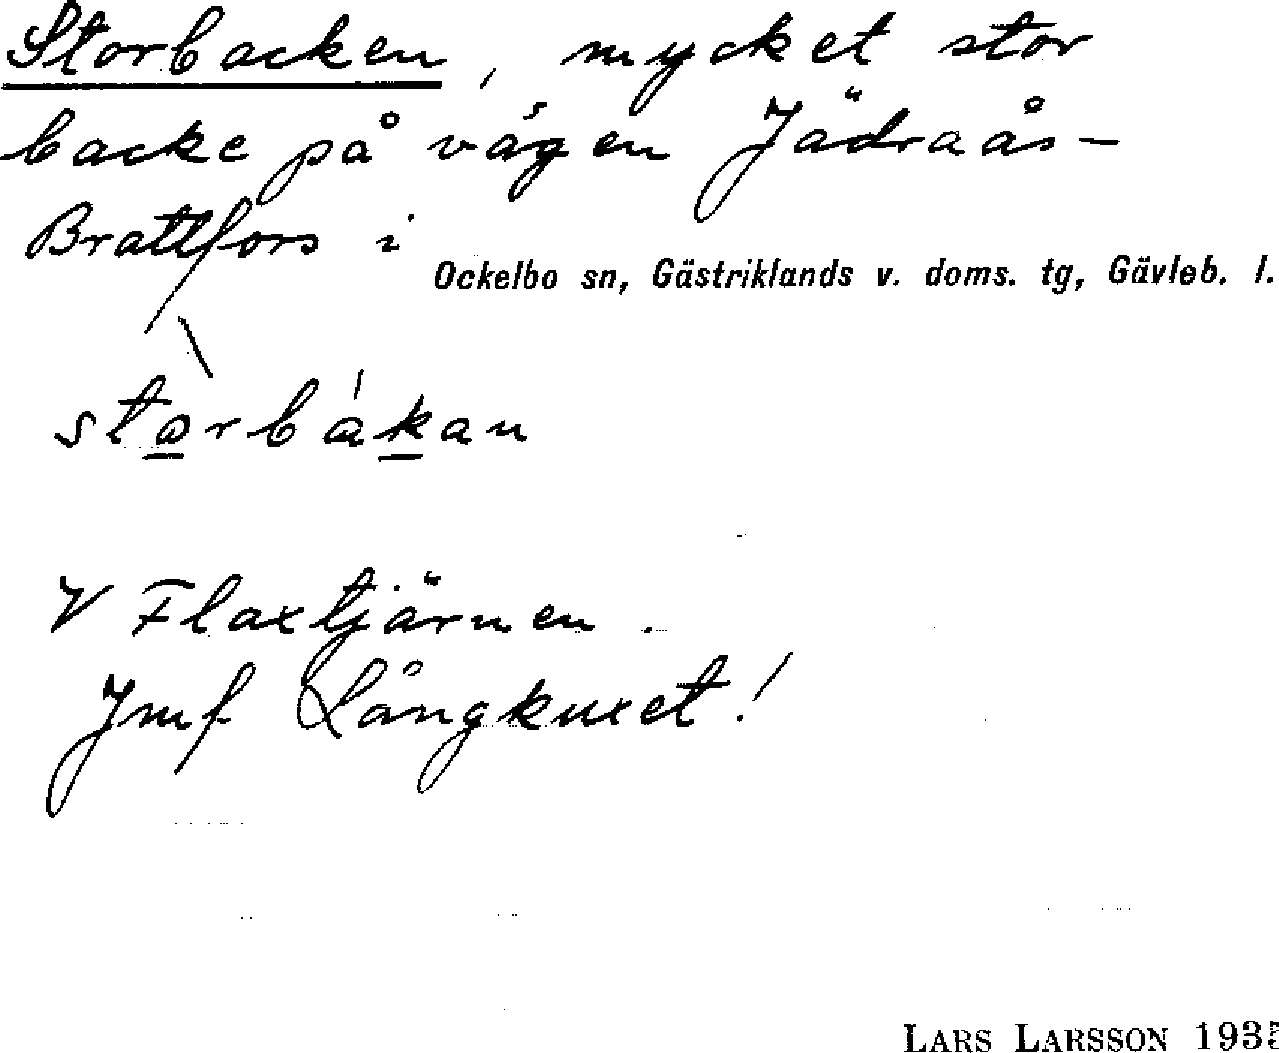 Storbacken, mycket stor
backe på vägen Jädraås-
Brattfors i
Ockelbo sn, Gästriklands v. doms. tg, Gävleb. l.
stòrbákan
V Flaxtjärnen.
Jmf Långkuxet!
LARS LARSSON 1935